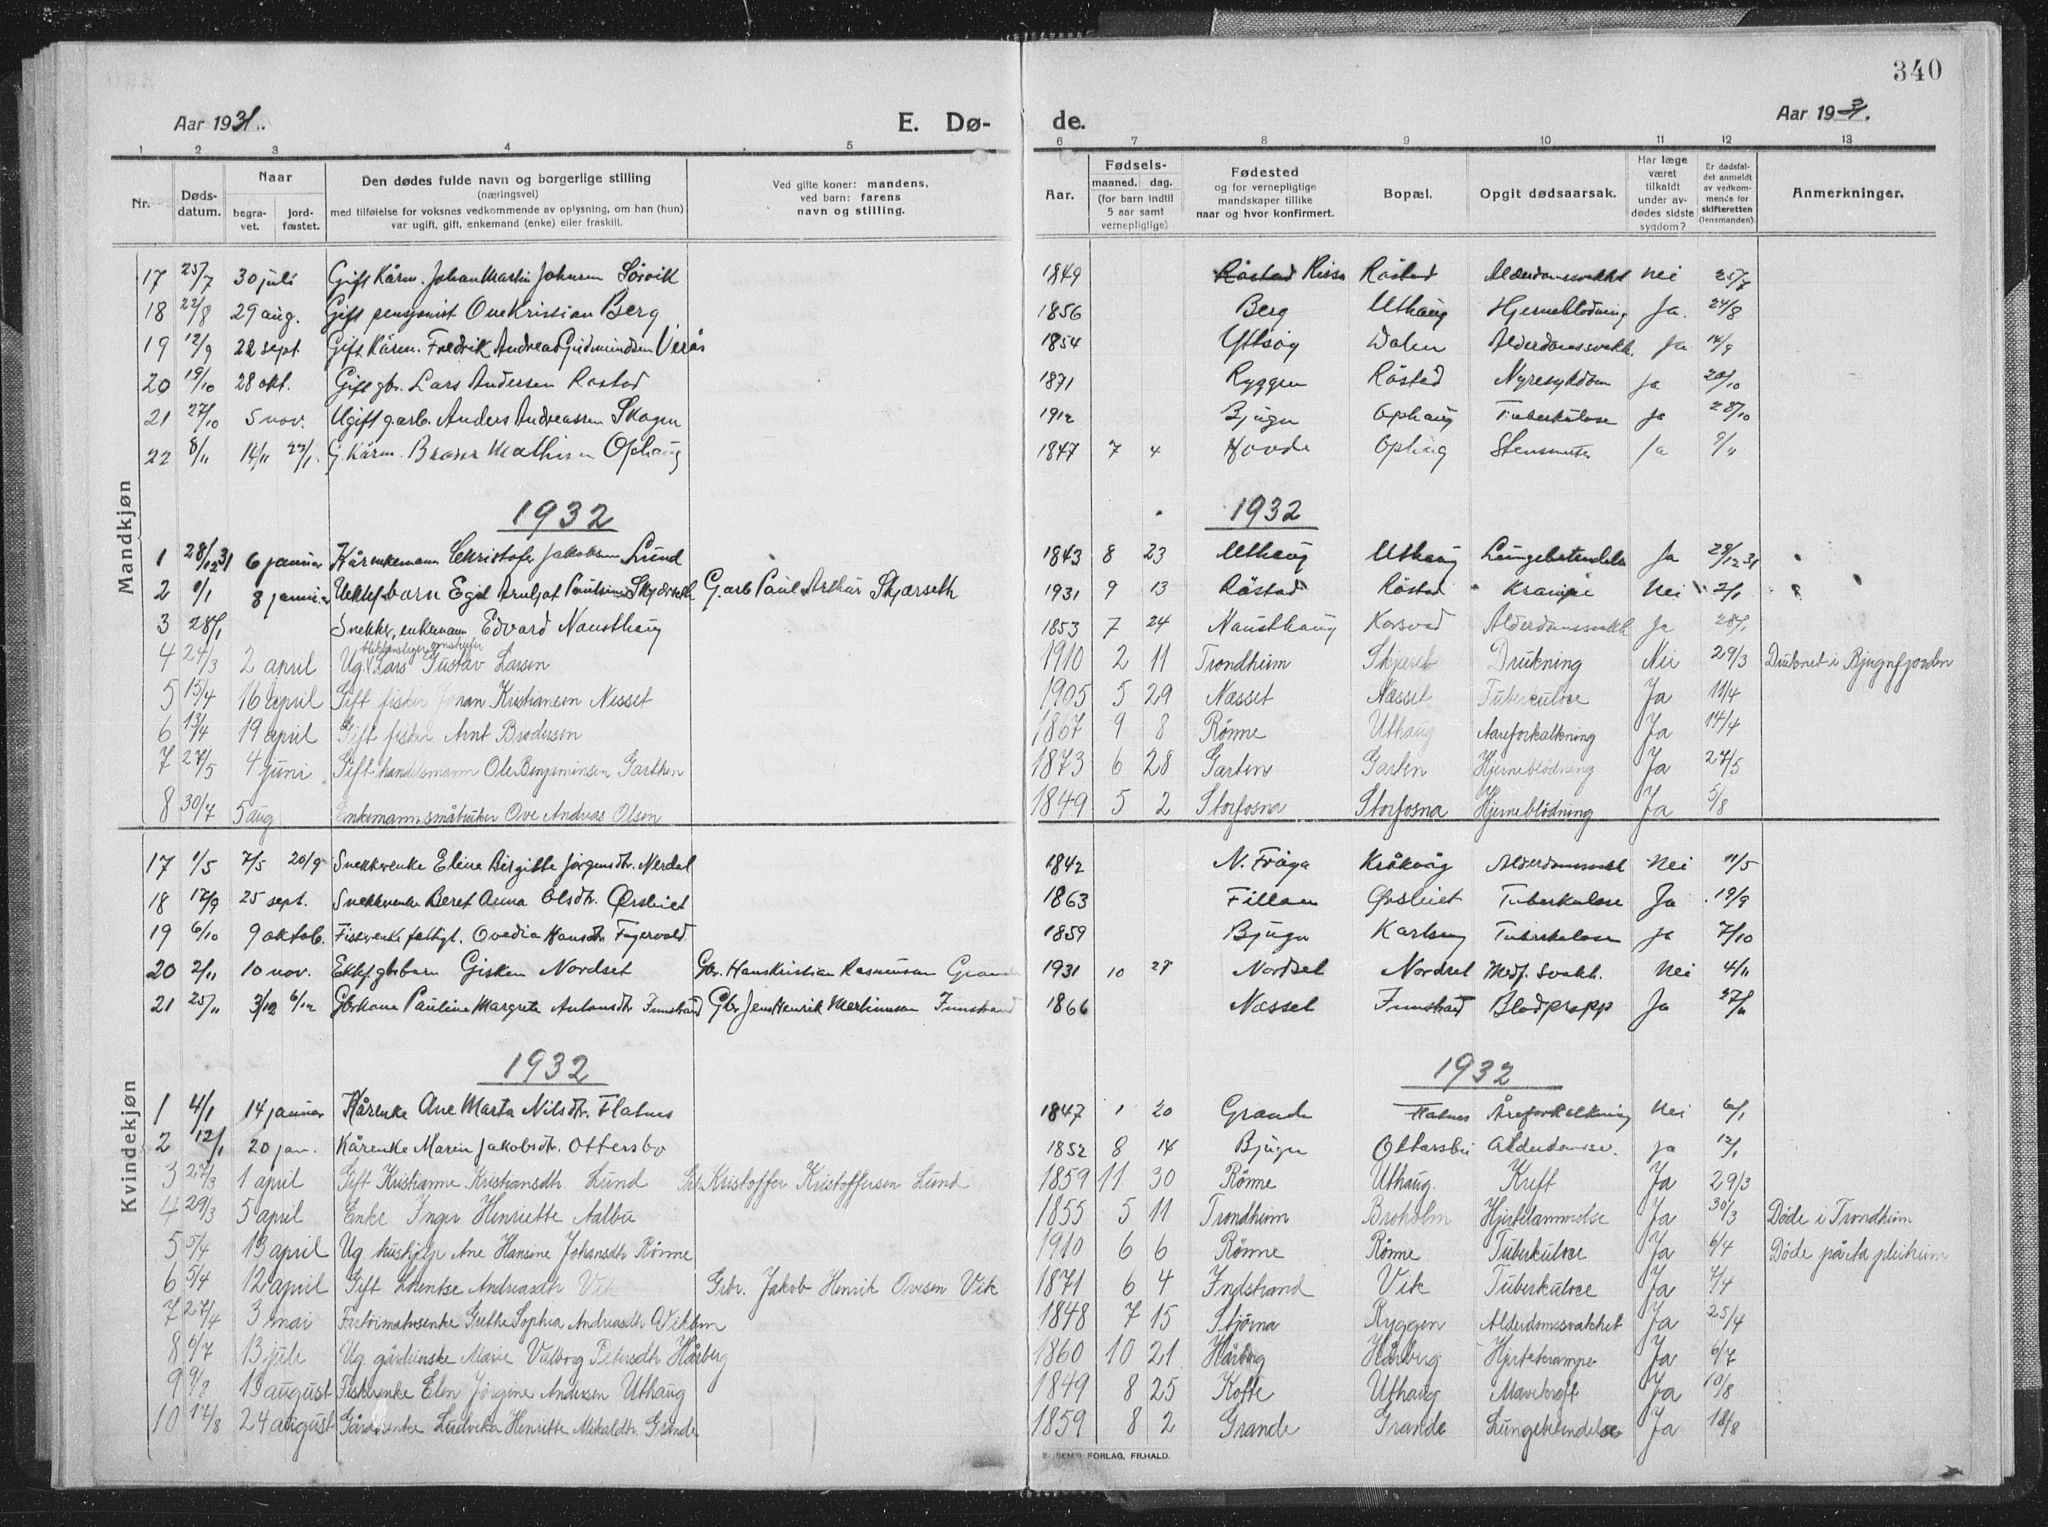 340
Aar 1931.
E. Dø-
de.
Aar 1931.
1 2 3 4 5 6 7 8 9 10 11 12 13
Nr.
Døds-
datum.
Naar
begra-
vet.
jord-
fæstet.
Den dødes fulde navn og borgerlige stilling
(næringsvei)
med tilføielse for voksnes vedkommende av oplysning, om han (hun)
var ugift, gift, enkemand (enke) eller fraskilt.
Ved gifte koner: mandens,
ved barn: farens
navn og stilling.
Aar.
Fødsels-
maaned. dag.
(for barn indtil
5 aar samt
vernepligtige)
Fødested
og for vernepligtige
mandskaper tillike
naar og hvor konfirmert.
Bopæl.
Opgit dødsaarsak.
Har læge
været
tilkaldt
under av-
dødes sidste
sygdom?
Er dødsfal-
det anmeldt
av vedkom-
mende for
skifteretten
(lensmanden).
Anmerkninger.
Mandkjøn
17 25/7 30 juli Gift Kårm. Johan Martin Johnsen Sörvik 1849 Röstad Rissa Röstad Alderdomssvakhet Nei 25/7
18 22/8 29 aug. Gift pensjonist Ove Kristian Berg 1856 Berg Uthaug Hjerneblödning Ja. 24/8
19 12/9 22 sept. Gift Kårm. Fredrik Andreas Gudmundsen Verås 1854 Dalen Alderdomssvakh. Ja 14/9
20 19/10 28 okt. Gift gbr. Lars Andersen Röstad 1871 Ryggen Röstad Nyresykdom Ja 20/10
21 27/10 5 nov. Ugift g.arb. Anders Andreassen Skogen 1912 Bjugn Ophaug Tuberkulose Ja 28/10
22 8/11 14/11 G. Kårm. Broder Mathisen Ophaug 1847 7 4 Hovde Ophaug Ja 9/11
1932
1932
1 28/12 31 6 januar Kårenkemann Christofer Jakobsen Lund 1843 8 23 Uthaug Uthaug Lungebetendelse Ja 29/12 31
2 1/1 8 januar Uektef. barn Egil Arnljot Paulsen Skjærseth G.arb. Paul Arthur Skjærseth 1931 9 13 Röstad Röstad Krampe Nei 2/1
3 28/1 Snekker, enkemann Edvard Nausthaug 1853 7 24 Nausthaug Karsvad Alderdomssvakh. Ja 28/1
4 24/3 2 april Ug. Lars Gustav Larsen 1910 2 11 Trondheim Drukning Nei 29/3 Druknet i Bjugnfjorden
5 15/4 16 april Gift fisker Johan Kristiansen Nesset 1905 5 29 Næsset Næsset Tuberkulose Ja 14/4
6 13/4 19 april Gift fisker Arnt Brodersen 1867 9 8 Rönne Uthaug Aareforkalkning Ja 14/4
7 27/5 4 juni Gift handelsmann Ole Benjaminsen Garthen 1873 6 28 Garten Garten Hjerneblödning Ja 27/5
8 30/7 5 aug Enkemann småbruker Ove Andreas Olsen 1849 5 2 Storfosna Storfosna Hjerneblödning Ja 5/8
Kvindekjøn
17 1/5 7/5 20/9 Snekkerenke Eline Birgitte Jörgensdtr. Nerdal 1842 N. Fröya Kråkvåg Alderdomssvakh Nei 11/5
18 17/9 25 sept. Snekkerenke Beret Anna Olsdtr. Örsleiet 1863 Fillan Örsleiet Tuberkulose Ja 19/9
19 6/10 9 oktob. Fiskerenke fattigl. Ovedia Hansdtr. Fagervold 1859 Bjugn Karlseng Tuberkulose Ja 7/10
20 2/11 10 nov. Ektef. gbr.barn Gisken Nordset Gbr. Hans Kristian Rasmussen Grande 1931 10 27 Nordset Nordset Medf. svakh. Nei 4/11
21 25/11 3/12 6/12 Gbrkone Pauline Margrete Antonsdtr. Innstrand Gbr. Jens Henrik Martinusen Innstrand 1866 Næsset Innstrand Blodpropp Ja 27/11
1932
1932
1 4/1 14 januar Kårenke Ane Marta Nilsdtr. Flatnes 1847 1 20 Grande Flatnes Åreforkalkning Nei 6/1
2 12/1 20 jan. Kårenke Maren Jakobsdtr. Ottersbo 1852 8 14 Bjugn Ottersbo Alderdomssv. Ja 12/1
3 27/3 1 april Gift Kristianne Kristiansdtr Lund Gbr Kristoffer Kristoffersen Lund 1859 11 30 Rönne Uthaug. Kreft Ja 29/3
4 29/3 5 april Enke Inger Henriette Aalbu 1855 5 11 Trondheim Broholm Hjertelammelse Ja 30/3 Döde i Trondheim
5 5/4 13 april Ug. hushjelp Ane Hansine Johansdtr Rönne 1910 6 6 Rönne Rönne Tuberkulose Ja 6/4
6 5/4 12 april Gift Lorentse Andreasdtr Vik Gbr. Jakob Henrik Ovesen Vik 1871 6 4 Indstrand Vik Tuberkulose Ja 7/4
7 27/4 3 mai Grethe Sophia Andreasdtr 1848 7 15 Stjörna Ryggen Alderdomssvakhet Ja 25/4
8 6/7 13 juli Ug. gårdmske Marie Valborg Petersdtr Hårberg 1860 10 21 Hårberg Hårberg Hjertekrampe Ja 6/7
9 9/8 13 august Fiskerenke Elen Jörgine Andersen Uthaug 1849 8 25 Kofte Uthaug Mavekreft Ja 10/8
10 14/8 24 august Gårdsenke Ludvika Henriette Mikaldtr. Grande 1859 8 2 Grande Grande Lungebetendelse Ja 18/8
SEM'S FORLAG, FR.HALD.